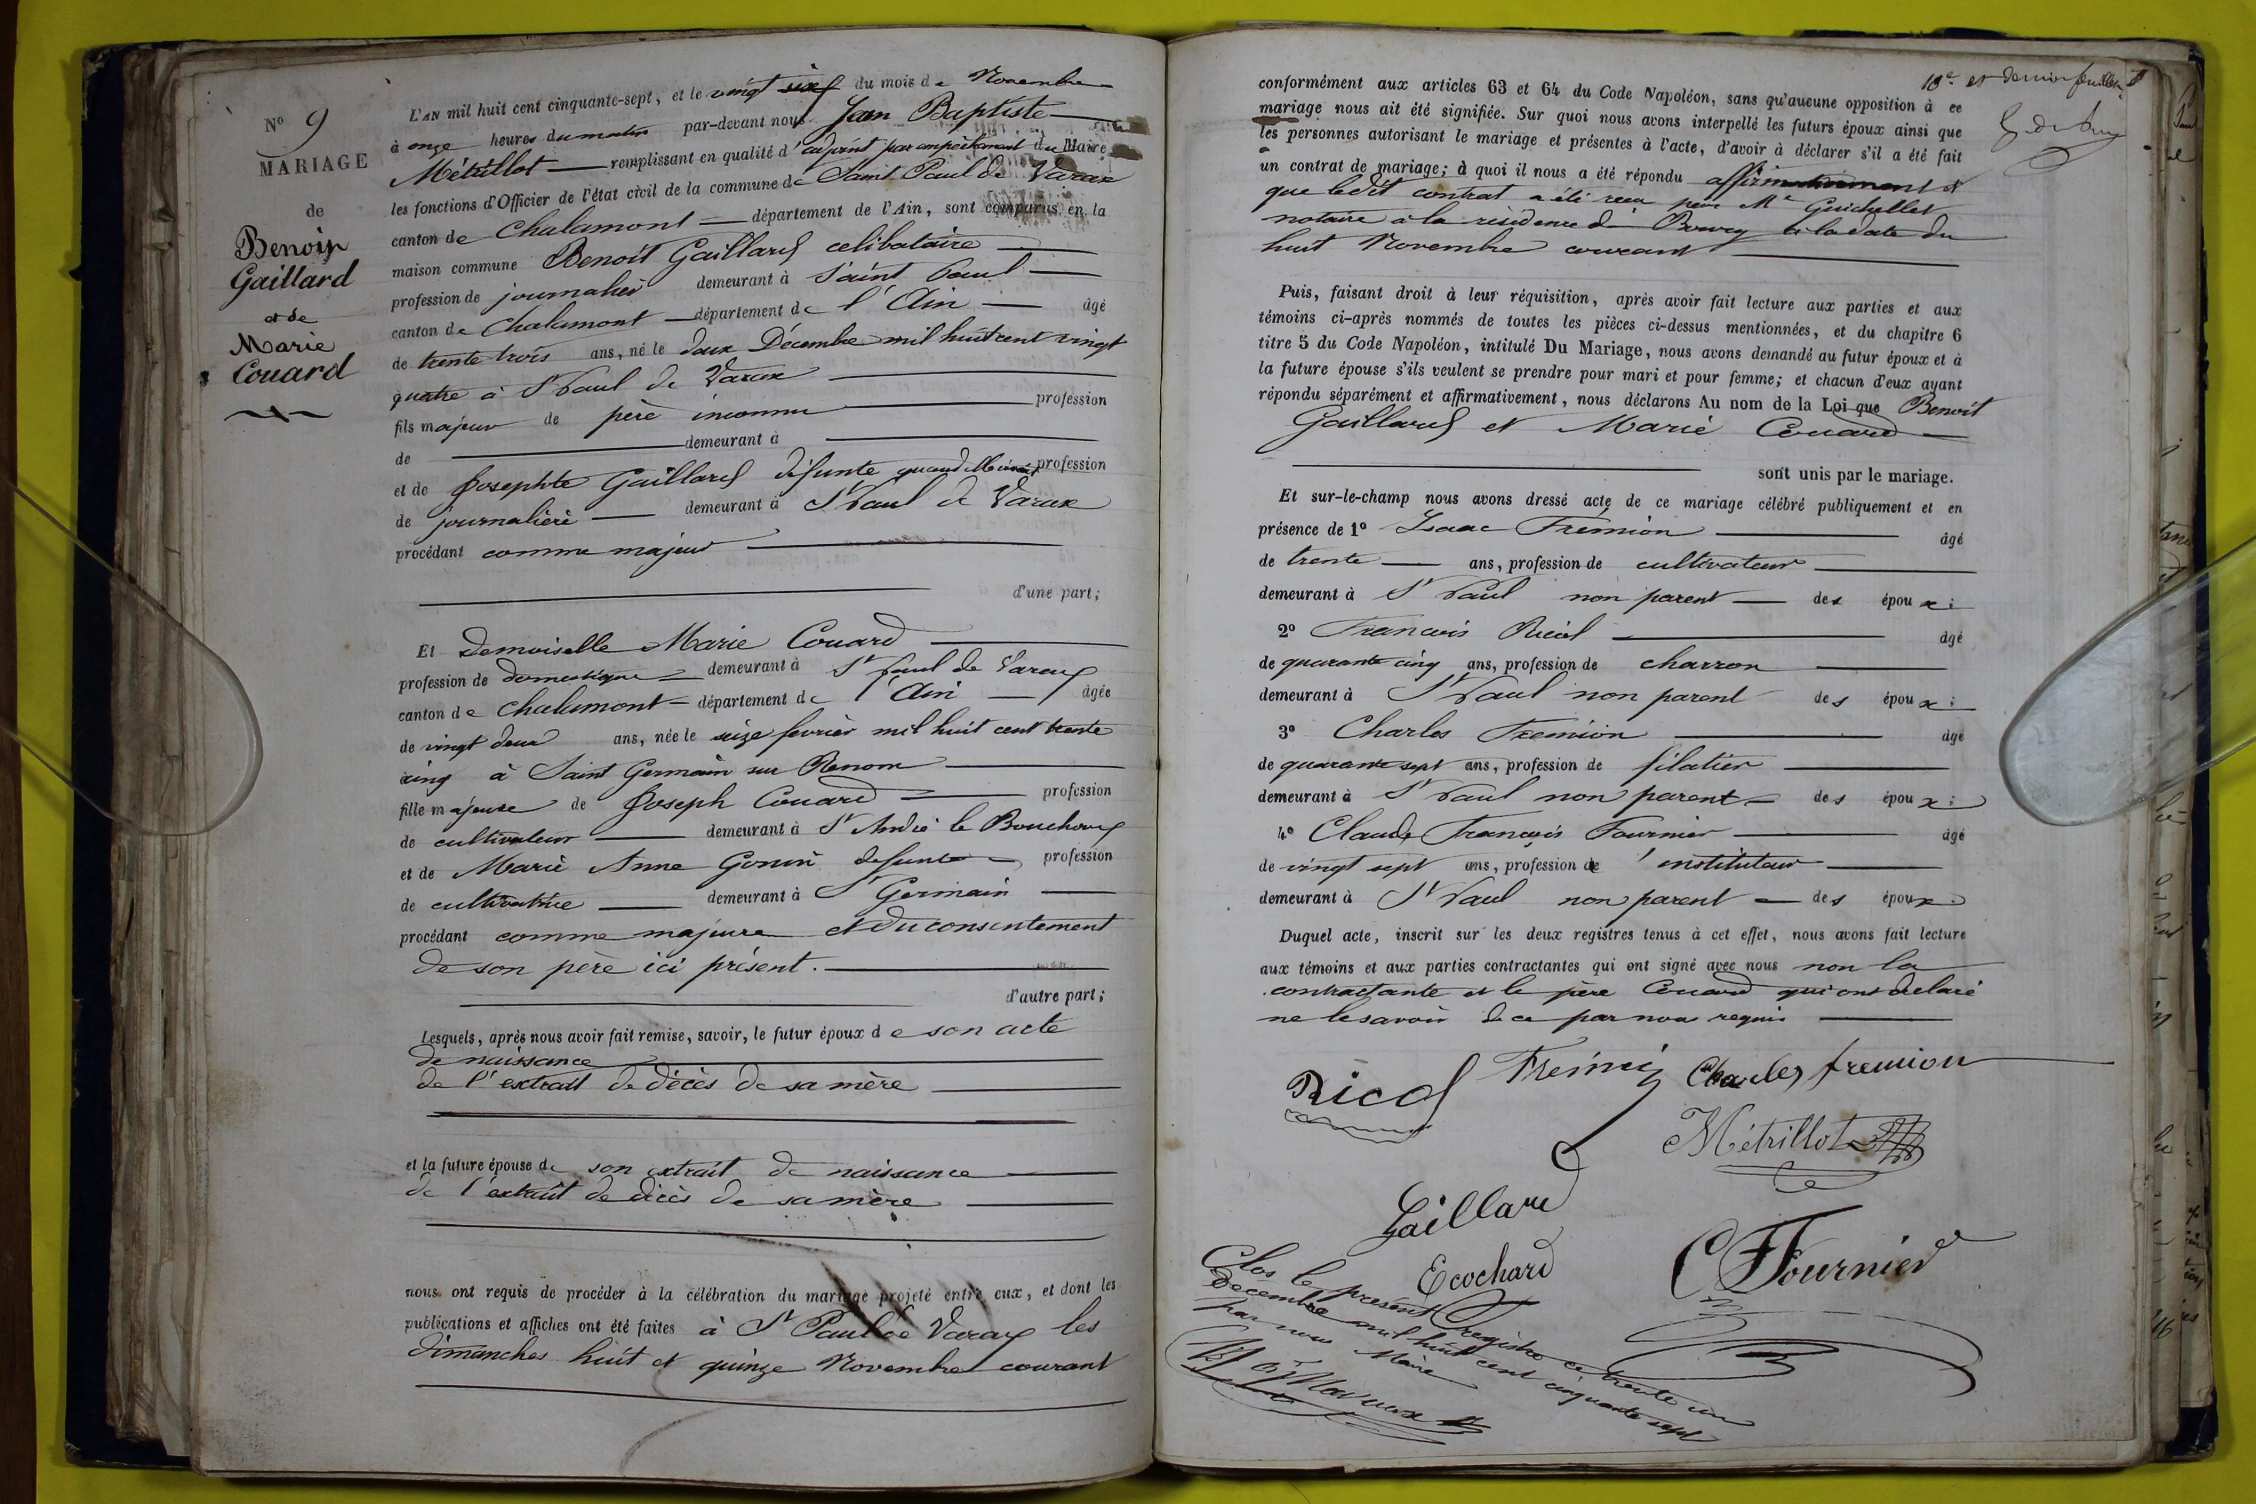 N° 9
MARIAGE
de
Benoit
Gaillard
et de
Marie
Couard
L'AN mil huit cent cinquante-sept, et le vingt six du mois de Novembre
à onze heures du matin par-devant nous Jean Baptiste
Métrillot remplissant en qualité d'adjoint par empêchement du Maire
les fonctions d'Officier de l'état civil de la commune de Saint Paul de Varax
canton de Chalamont département de l'Ain, sont comparus en la
maison commune Benoit Gaillard celibataire
profession de journalier demeurant à Saint Paul
canton de Chalamont département de l'Ain âgé
de trente trois ans, né le deux Décembre mil huit cent vingt
quatre à St Paul de Varax
fils majeur de père inconnu profession
de demeurant à
et de Josephte Gaillard défunte quand profession
de journalière demeurant à St Paul de Varax
procédant comme majeur
d'une part;
Et Demoiselle Marie Couard
profession de domestique demeurant à St Paul de Varax
canton de Chalamont département de l'Ain âgée
de vingt deux ans, née le seize fevrier mil huit cent trente
cinq à Saint Germain sur Renom
fille majeure de Joseph Couard profession
de cultivateur demeurant à St André le Bouchoux
et de Marie Anne Gonin defunte profession
de cultivatrice demeurant à St Germain
procédant comme majeure et du consentement
de son père ici présent.
d'autre part;
Lesquels, après nous avoir fait remise, savoir, le futur époux de son acte
de naissance
de l'extrait de décès de sa mère
et la future épouse de son extrait de naissance
de l'extrait de décès de sa mère
nous ont requis de procéder à la célébration du mariage projeté entre eux, et dont les
publications et affiches ont été faites à St Paul de Varax les
dimanches huit et quinze Novembre courant
18e et dernier feuillet
conformément aux articles 63 et 64 du Code Napoléon, sans qu'aucune opposition à ce
mariage nous ait été signifiée. Sur quoi nous avons interpellé les futurs époux ainsi que
les personnes autorisant le mariage et présentes à l'acte, d'avoir à déclarer s'il a été fait
un contrat de mariage; à quoi il nous a été répondu affirmativement et
que ledit contrat a été recu par Me Guichellet
notaire à la résidence de Bourg à la date du
huit Novembre courant
Puis, faisant droit à leur réquisition, après avoir fait lecture aux parties et aux
témoins ci-après nommés de toutes les pièces ci-dessus mentionnées, et du chapitre 6
titre 5 du Code Napoléon, intitulé Du Mariage, nous avons demandé au futur époux et à
la future épouse s'ils veulent se prendre pour mari et pour femme; et chacun d'eux ayant
répondu séparément et affirmativement, nous déclarons Au nom de la Loi que Benoit
Gaillard et Marie Couard
sont unis par le mariage.
Et sur-le-champ nous avons dressé acte de ce mariage célébré publiquement et en
présence de 1° Isaac Fremion âgé
de trente ans, profession de cultivateur
demeurant à St Paul non parent des époux;
2° Francois Ricol âgé
de quarante cinq ans, profession de charron
demeurant à St Paul non parent des époux;
3° Charles Fremion âgé
de quarante sept ans, profession de filatier
demeurant à St Paul non parent des époux;
4° Claude François Fournier âgé
de vingt sept ans, profession d'instituteur
demeurant à St Paul non parent des époux.
Duquel acte, inscrit sur les deux registres tenus à cet effet, nous avons fait lecture
aux témoins et aux parties contractantes qui ont signé avec nous non la
contractante et le père Couard qui ont declaré
ne le savoir de ce par nous requis
Ricol
Charles fremion
Métrillot
Gaillard
Ecochard
C F Fournier
Clos le présent registre ce trente un
décembre mil huit cent cinquante sept
par nous Maire